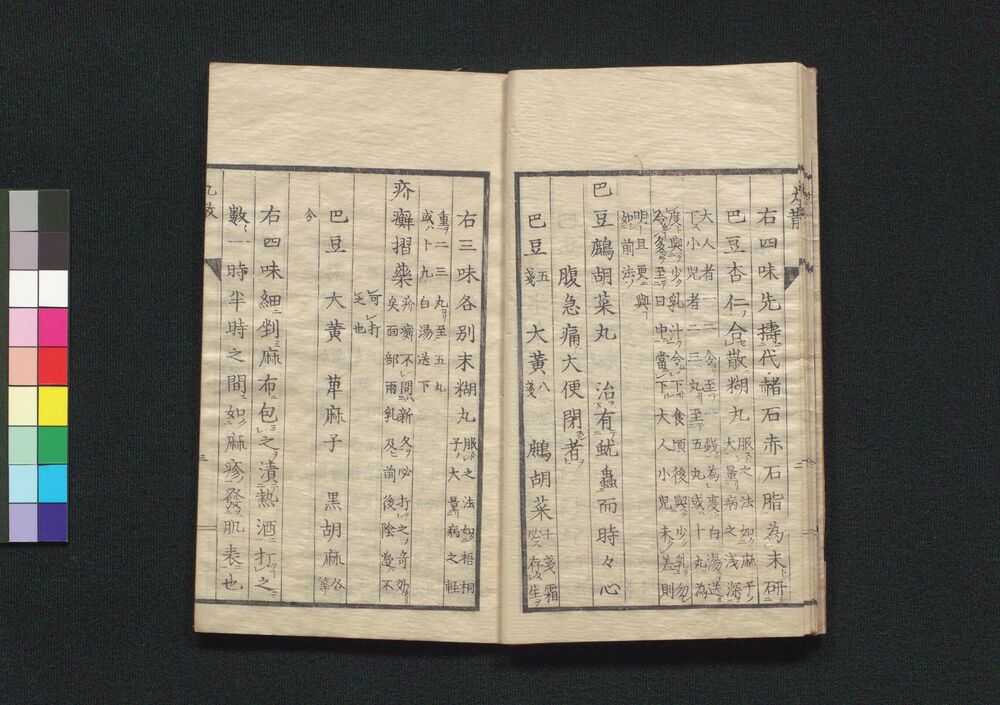 右四味先擣代赭石赤石脂為末研
巴豆杏仁合散糊丸
服之法如麻子
大量病之浅深
大人者一二分至一錢為度白湯送
下小児者二三丸至五丸或十丸為
度與少乳汁合下食頃後與少乳勿
令多至日中當下大人小児未差則
明旦更與
如前法
巴豆鷓胡菜丸 治有魷蟲而時々心
腹急痛大便閉者
巴豆 五戔 大黄 八戔 鷓胡菜 十戔霜
必存生
右三味各別末糊丸
服之法如梧桐
子大量病之軽
重二三丸至五丸
或十丸白湯送下
疥癬摺藥
疥癬不問新久必打之奇効
矣面部両乳及前後陰邊不
可打
之也
巴豆 大黄 萆麻子 黒胡麻 各等
分
右四味細剉麻布包之漬熱酒打之
數一時半時之間如麻疹發肌表也
丸散